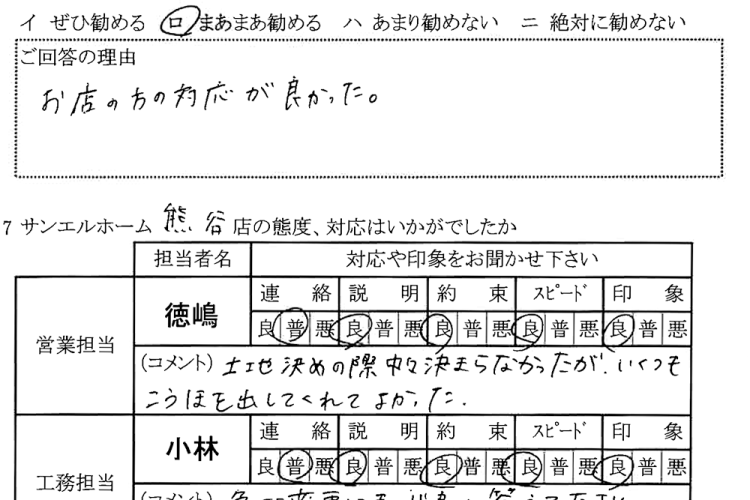 イ ぜひ勧める ロ まあまあ勧める ハ あまり勧めない ニ 絶対に勧めない
ご回答の理由
お店の方の対応が良かった。
7 サンエルホーム 熊谷 店の態度、対応はいかがでしたか
担当者名 対応や印象をお聞かせ下さい
営業担当 徳嶋 連絡 説明 約束 スピード 印象
良 普 悪 良 普 悪 良 普 悪 良 普 悪 良 普 悪
(コメント) 土地決めの際中々決まらなかったが、いくつも
こうほを出してくれてよかった.
工務担当 小林 連絡 説明 約束 スピード 印象
良 普 悪 良 普 悪 良 普 悪 良 普 悪 良 普 悪
(コメント)